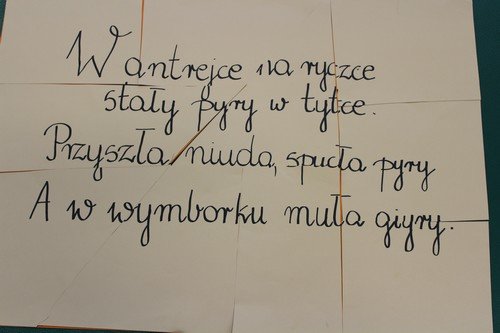 W antrejce na ryczce
stały pyry w tytce.
Przyszła niuda, spucła pyry
A w wymborku muła giyry.